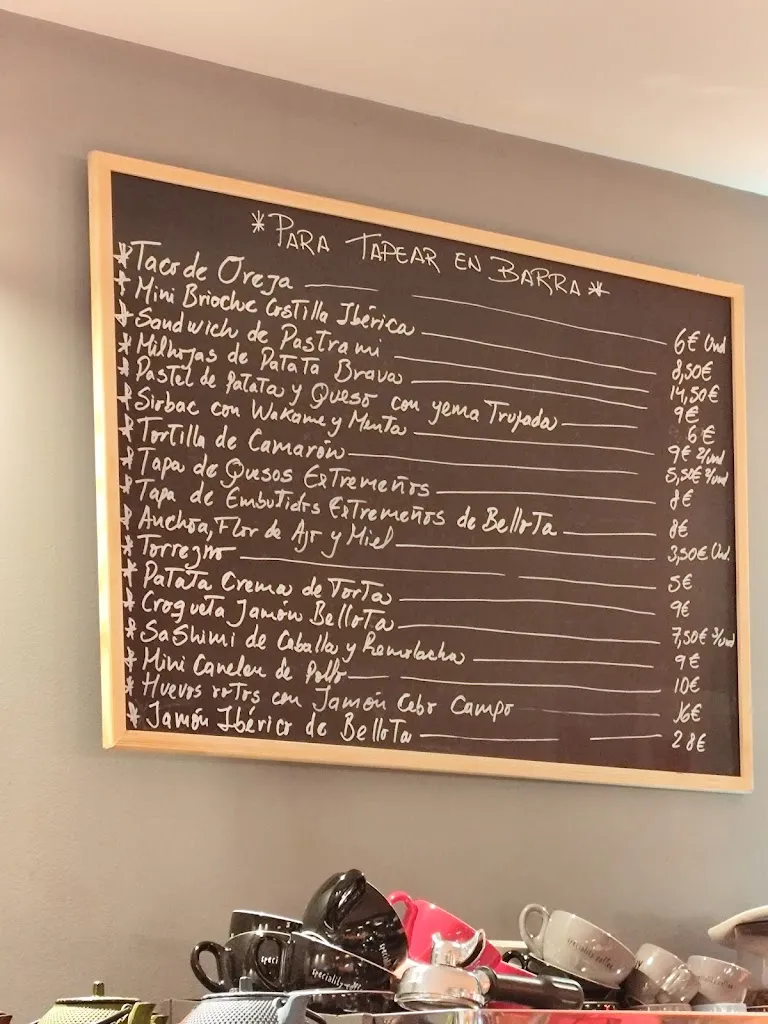 *PARA TAPEAR EN BARRA*
*Taco de Oreja 6€ Und
*Mini Brioche Costilla Ibérica 8,50€
*Sandwich de Pastrami 14,50€
*Milhojas de Patata Brava 9€
*Pastel de Patata y Queso con yema Trufada 6€
*Sirbac con Wakame y Menta 9€ 2/und
*Tortilla de Camarón 5,50€ 2/und
*Tapa de Quesos Extremeños 8€
*Tapa de Embutidos Extremeños de Bellota 8€
*Anchoa, Flor de Ajo y Miel 3,50€ Und.
*Torrezno 5€
*Patata Crema de Torta 9€
*Croqueta Jamón Bellota 7,50€ 3/und
*Sashimi de Caballa y Remolacha 9€
*Mini Canelon de Pollo 10€
*Huevos rotos con Jamón Cebo Campo 16€
*Jamón Ibérico de Bellota 28€
speciality
speciality coffee